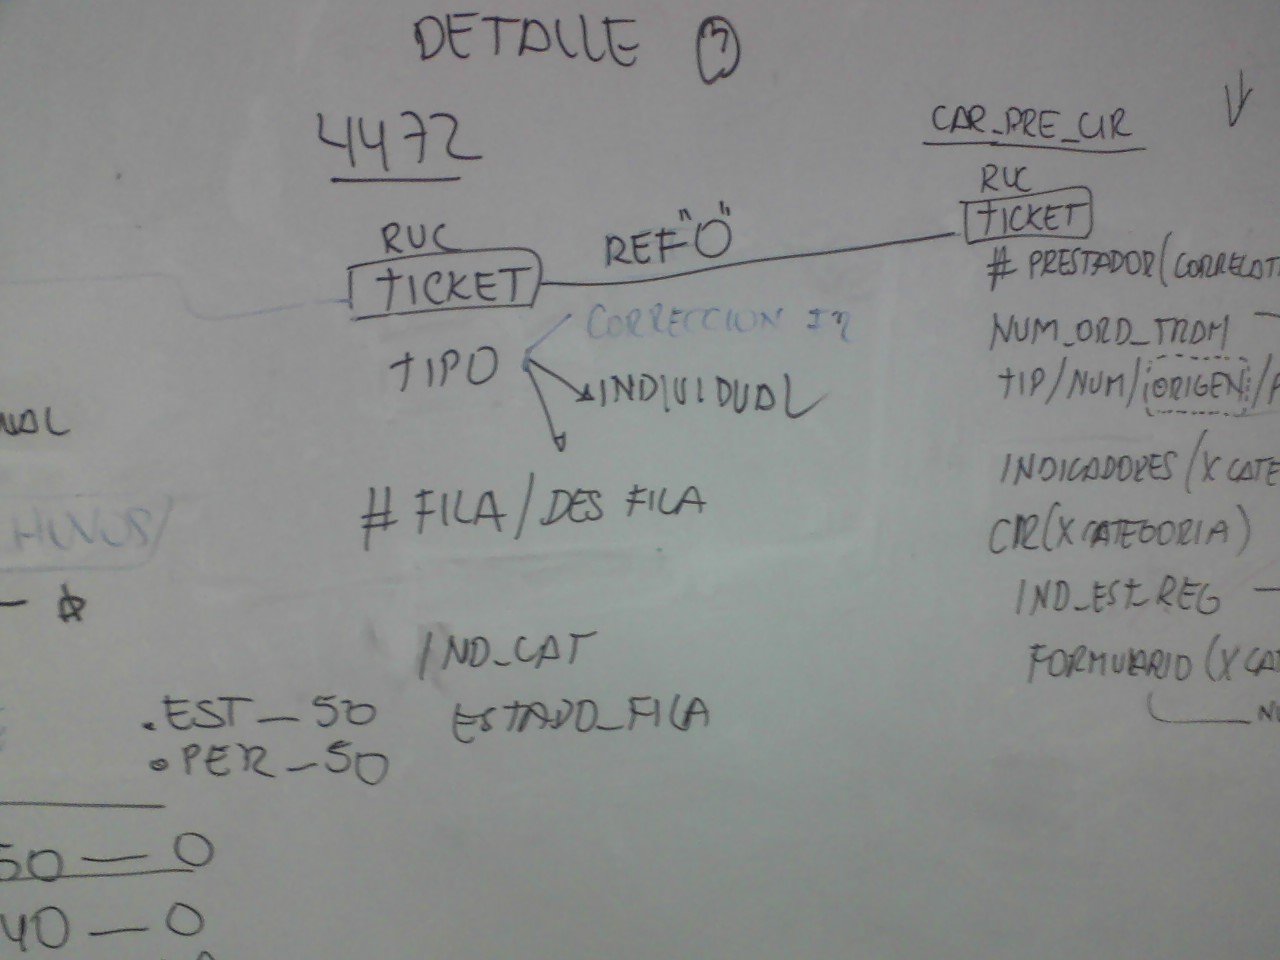 DETALLE
4472
RUC
TICKET
REF "0"
TIPO
CORRECCION
INDIVIDUAL
# FILA/DES FILA
IND_CAT
ESTADO_FILA
.EST_50
.PER_50
50 — 0
40 — 0
CAR_PRE_CIR
RUC
TICKET
# PRESTADOR(
NUM_ORD_TRDM
TIP/NUM/ORIGEN/
INDICADORES/X CATE
CIR(X CATEGORIA)
IND_EST_REG
FORMULARIO (X CAT